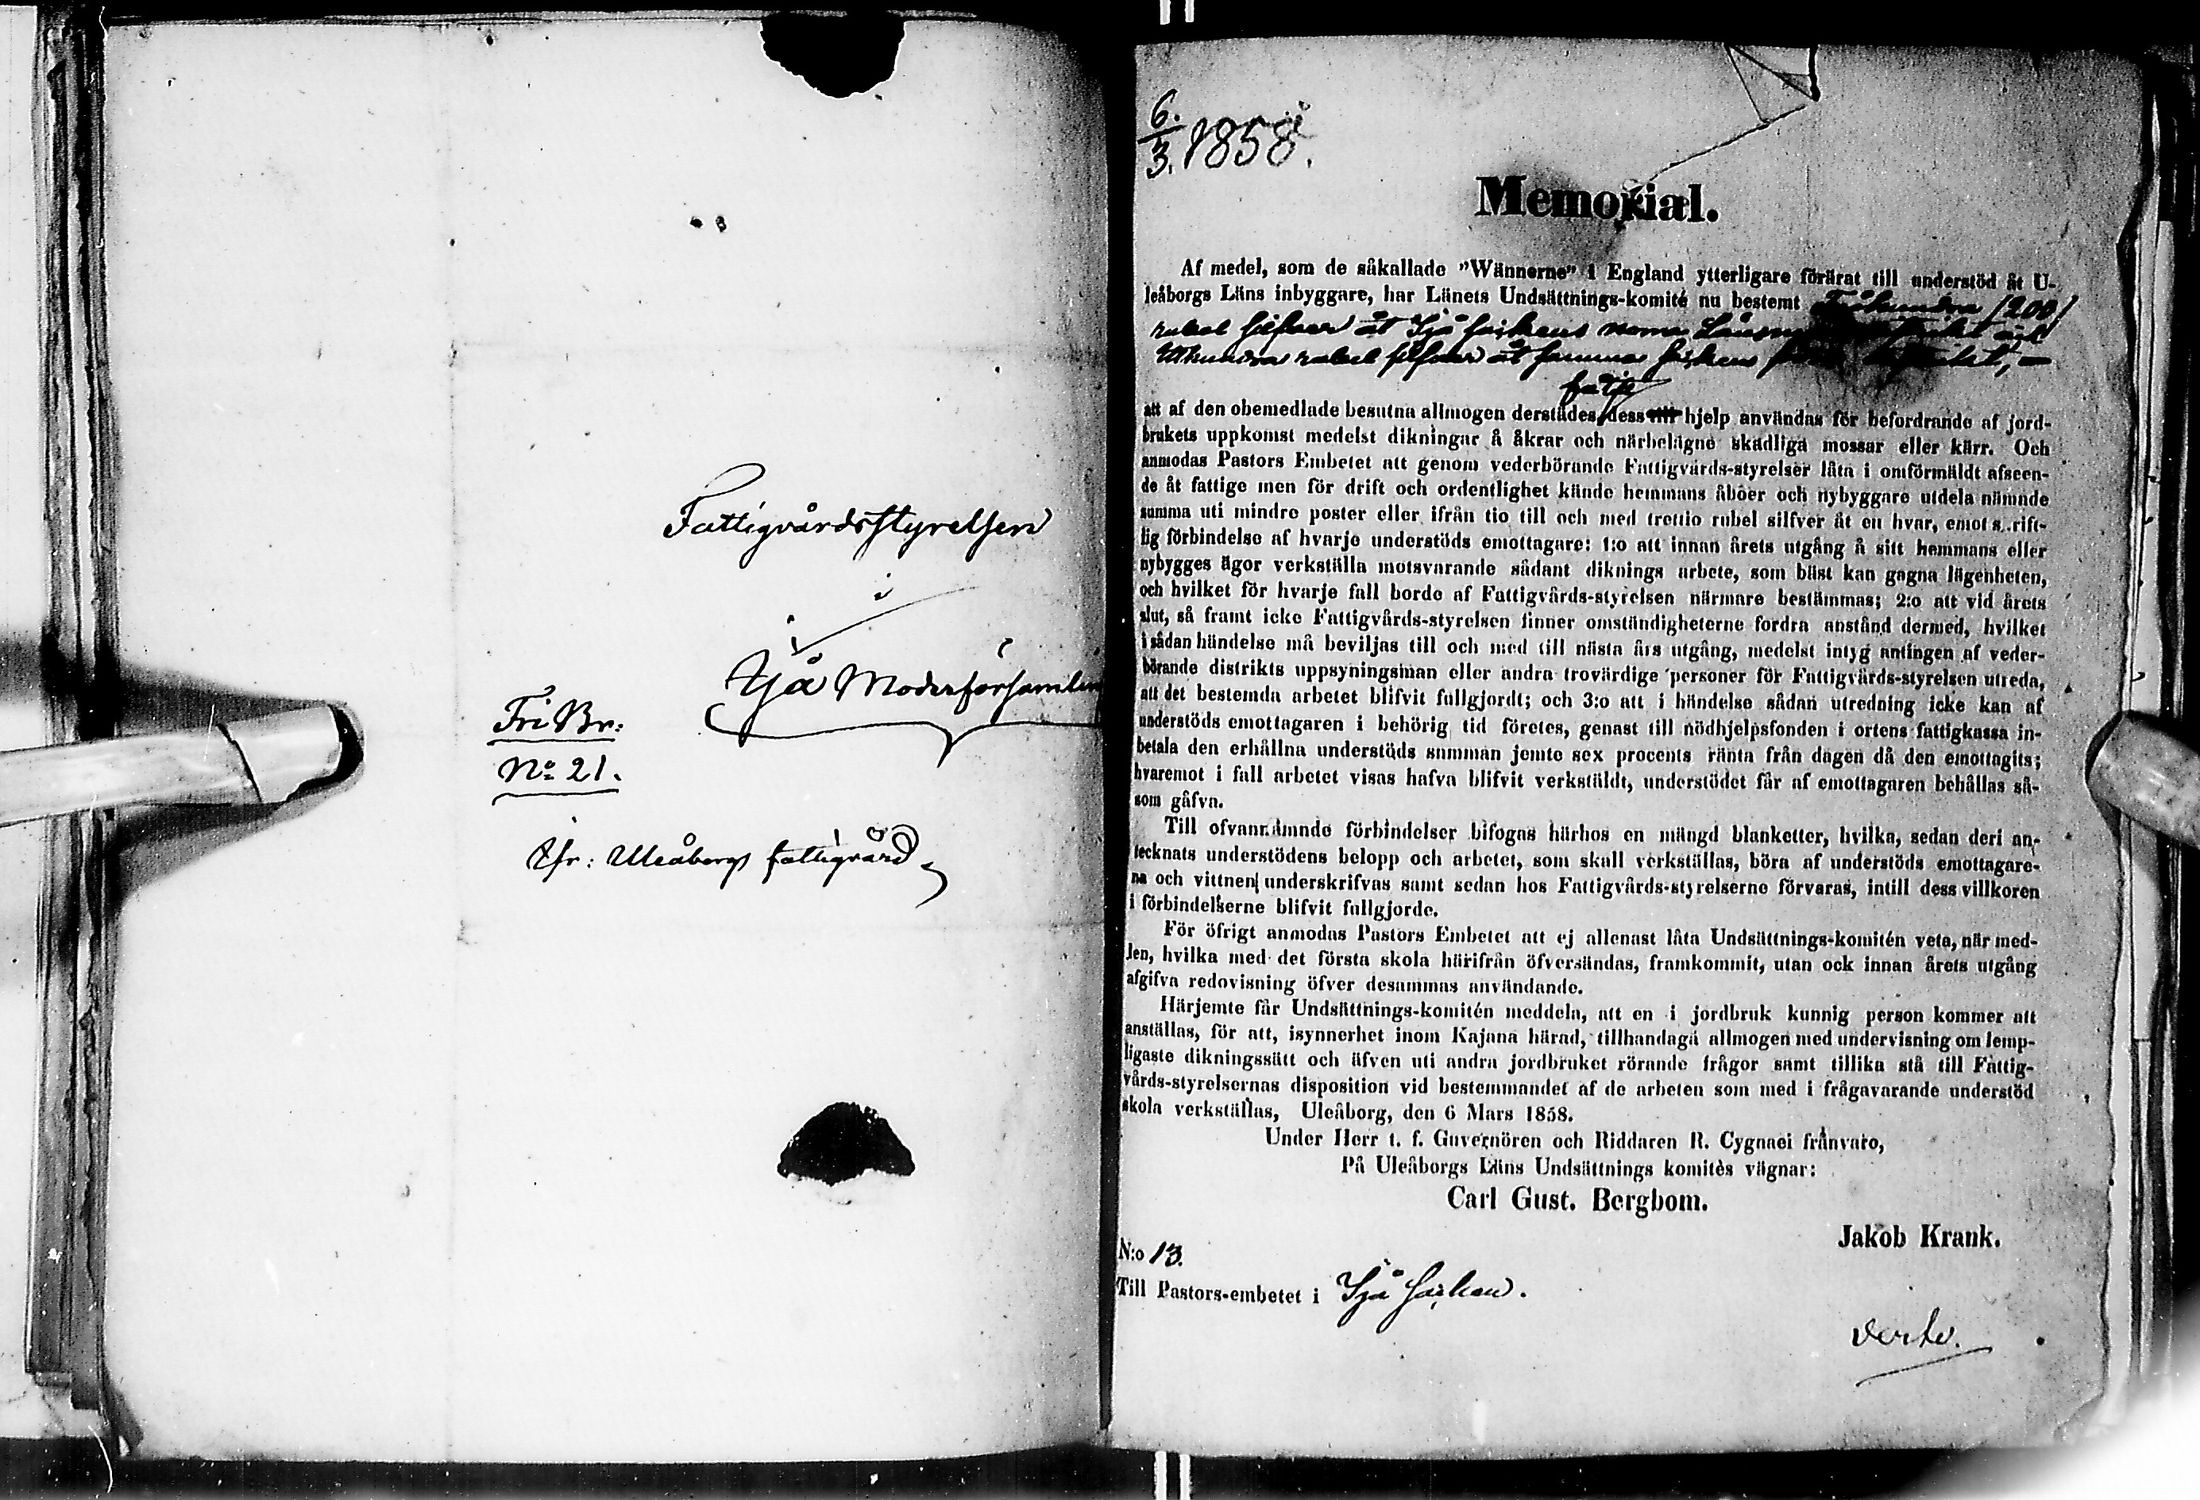 Fattigvårdsstyrelsen
i
Ijå Moderförsamlin
Fri Br:
No 21.
Ifr: Uleåborgs fattigvård
6.
3. 1858.
Memorial.
Af medel, som de såkallade "Wännerne" i England ytterligare förärat till understöd åt U-
leåborgs Läns inbyggare, har Länets Undsättnings-komité nu bestemt Tvåhundra /200/
rubel silfver åt Ijå sockens norra
Etthundra rubel silfver åt samma socken
att af den obemedlade besutna allmogen derstädes dess hjelp användas för befordrande af jord-
brukets uppkomst medelst dikningar å åkrar och närbelägne skadliga mossar eller kärr. Och
anmodas Pastors Embetet att genom vederbörande Fattigvårds-styrelser låta i omförmäldt afseen-
de åt fattige men för drift och ordentlighet kände hemmans åboer och nybyggare utdela nämnde
summa uti mindre poster eller ifrån tio till och med trettio rubel silfver åt en hvar, emot s.rift-
lig förbindelse af hvarje understöds emottagare: 1:o att innan årets utgång å sitt hemmans eller
nybygges ägor verkställa motsvarande sådant diknings arbete, som bäst kan gagna lägenheten,
och hvilket för hvarje fall borde af Fattigvårds-styrelsen närmare bestämmas; 2:o att vid årets
slut, så framt icke Fattigvårds-styrelsen finner omständigheterne fordra anstånd dermed, hvilket
i sådan händelse må beviljas till och med till nästa års utgång, medelst intyg antingen af veder-
börande distrikts uppsyningsman eller andra trovärdige personer för Fattigvårds-styrelsen utreda,
att det bestemda arbetet blifvit fullgjordt; och 3:o att i händelse sådan utredning icke kan af
understöds emottagaren i behörig tid företes, genast till nödhjelpsfonden i ortens fattigkassa in-
betala den erhållna understöds summan jemte sex procents ränta från dagen då den emottagits;
hvaremot i fall arbetet visas hafva blifvit verkstäldt, understödet får af emottagaren behållas så-
som gåfva.
Till ofvannämnde förbindelser bifogas härhos en mängd blanketter, hvilka, sedan deri an-
tecknats understödens belopp och arbetet, som skall verkställas, böra af understöds emottagare-
na och vittnen underskrifvas samt sedan hos Fattigvårds-styrelserne förvaras, intill dess villkoren
i förbindelserne blifvit fullgjorde.
För öfrigt anmodas Pastors Embetet att ej allenast låta Undsättnings-komitén veta, när med-
len, hvilka med det första skola härifrån öfversändas, framkommit, utan ock innan årets utgång
afgifva redovisning öfver desammas användande.
Härjemte får Undsättnings-komitén meddela, att en i jordbruk kunnig person kommer att
anställas, för att, isynnerhet inom Kajana härad, tillhandagå allmogen med undervisning om lemp-
ligaste dikningssätt och äfven uti andra jordbruket rörande frågor samt tillika stå till Fattig-
vårds-styrelsernas disposition vid bestemmandet af de arbeten som med i frågavarande understöd
skola verkställas, Uleåborg, den 6 Mars 1858.
Under Herr t. f. Guvernören och Riddaren R. Cygnæi frånvaro,
På Uleåborgs Läns Undsättnings komités vägnar:
Carl Gust. Bergbom.
Jakob Krank.
N:o 13.
Till Pastors-embetet i Ijå socken.
verte.